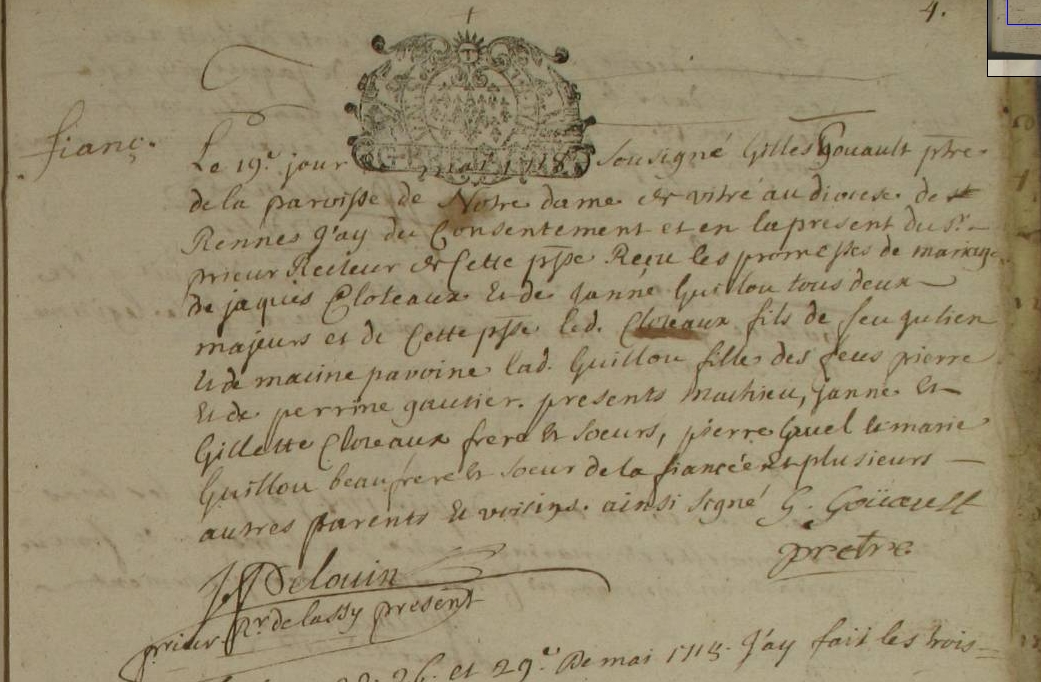 4.
fianç.
Le 19e. jour mai 1718 Sousigné Gilles Goüault ptre
de la paroisse de Notre dame de vitré au diocese de
Rennes J'ay du Consentement et en la present du Sr.
prieur Recteur de Cette psse Reçu les promesses de mariage
de jaques Cloteaux et de Janne Guillou tous deux
majeurs et de Cette psse led. Cloteaux fils de feu Julien
et de maurine pavoine lad. Guillou fille des feus pierre
et de perrine gautier. presents mathieu, janne et
Gillette Cloteaux frere et soeurs, pierre et marie
Guillou beaufrere et soeur de la fiancée et plusieurs
autres parents et voisins. ainsi signé G. Goüault
pretre
Delouin
prieur Rr. de lassy present
26. et 29e. De mai 1718. J'ay fait les trois